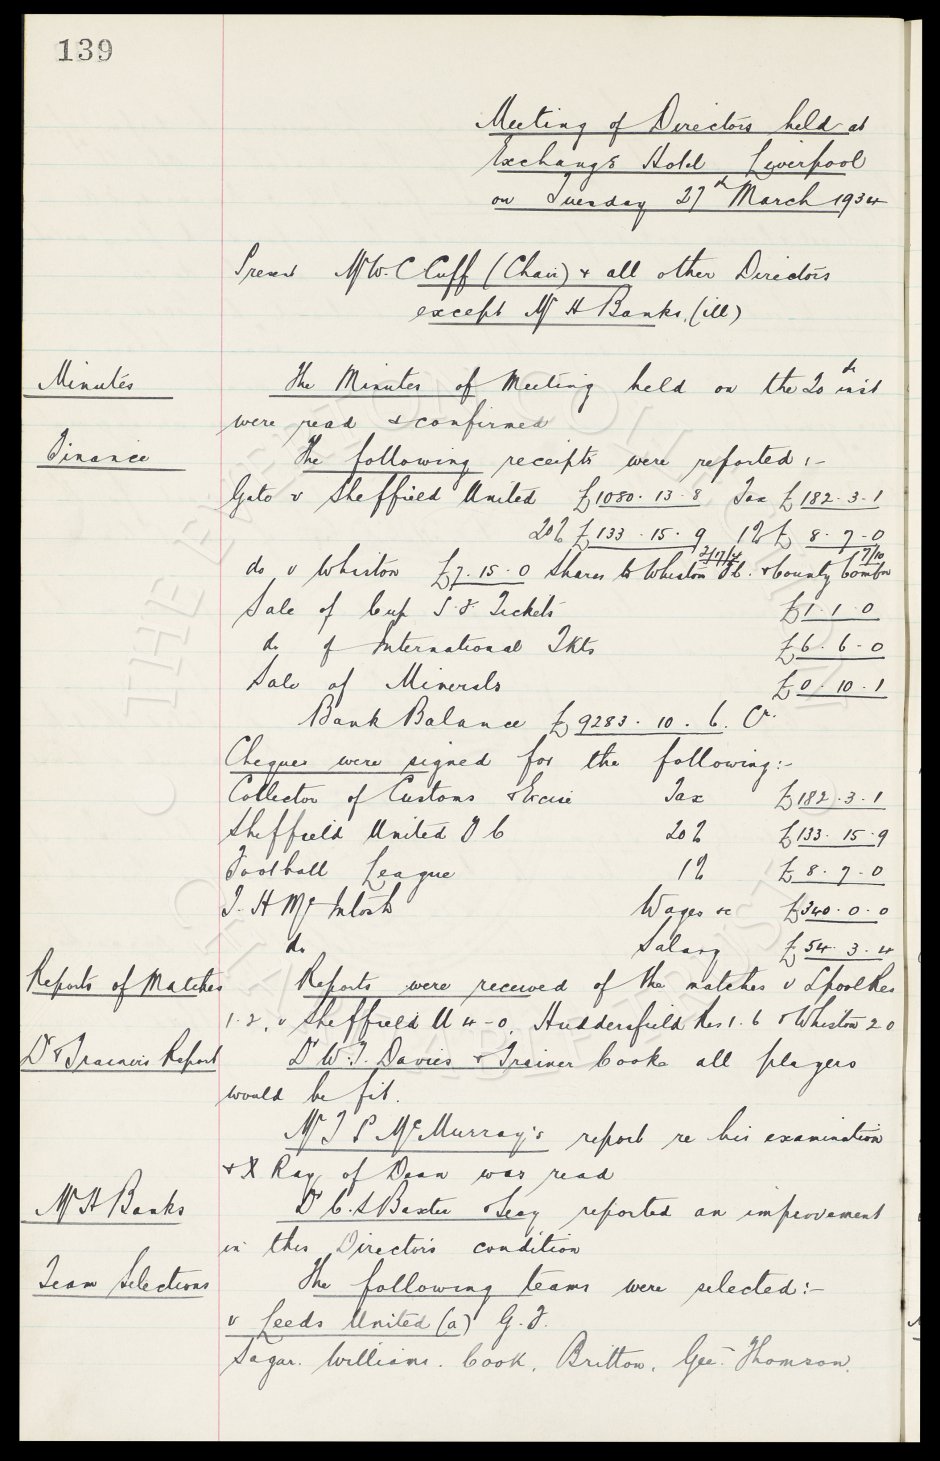 139
Meeting of Directors held at
Exchange Hotel Liverpool
on Tuesday 27th March 1934
Present Mr W. C Cuff (Chair) & all other Directors
except Mr H Banks. (ill)
Minutes
The Minutes of Meeting held on the 20th inst
were read & confirmed
Finance
The following receipts were reported :-
Gate v Sheffield United £1080. 13. 8 Tax £182. 3. 1
20% £133. 15. 9 1% £8. 7. 0
do v Whiston £7. 15. 0 Shares to Whiston 2/17/4 F.C. & County Combn 7/10
Sale of Cup S.F. Tickets £1. 1. 0
do of International Tkts £6. 6. 0
Sale of Minerals £0. 10. 1
Bank Balance £9283. 10. 6. Cr.
Cheques were signed for the following:-
Collector of Customs & Excise Tax £182. 3. 1
Sheffield United F C 20% £133. 15. 9
Football League 1% £8. 7. 0
T. H McIntosh Wages &c £340. 0. 0
do Salary £54. 3. 4
Reports of Matches
Reports were received of the matches v Lpool Res
1. 2, v Sheffield U 4-0, Huddersfield Res 1. 6 & Whiston 2 0
Dr & Trainers Report
Dr W. T. Davies & Trainer Cooke all players
would be fit.
Mr T P McMurray's report re his examination
& X Ray of Dean was read
Mr H Banks
Dr C. S Baxter & Leay reported an improvement
in this Director's condition
Team Selections
The following teams were selected:-
v Leeds United (a) G. F.
Sagar. Williams. Cook. Britton. Gee. Thomson.